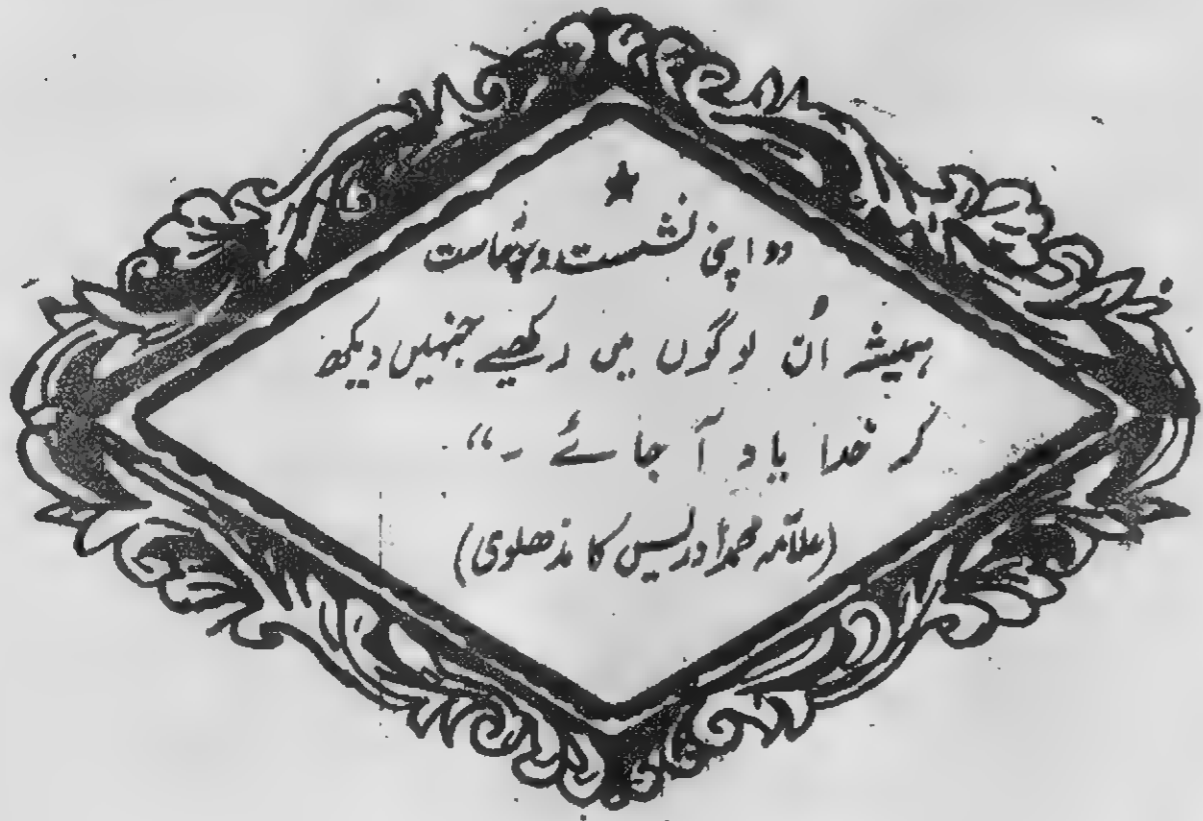 "اپنی نشست و برخاست
ہمیشہ اُن لوگوں میں رکھیے جنہیں دیکھ
کر خدا یاد آ جائے ۔"
(علامہ محمد ادریس کاندھلوی)